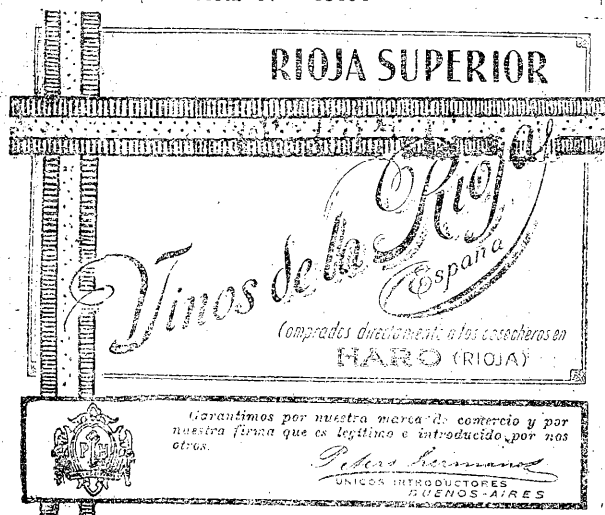 RIOJA SUPERIOR
Vinos de la Rioja
España
Comprados directamente a los cosecheros en
HARO (RIOJA)
Garantimos por nuestra marca de comercio y por
nuestra firma que es legitimo e introducido por nos
otros.
PH
Peters hermanos
UNICOS INTRODUCTORES
BUENOS-AIRES